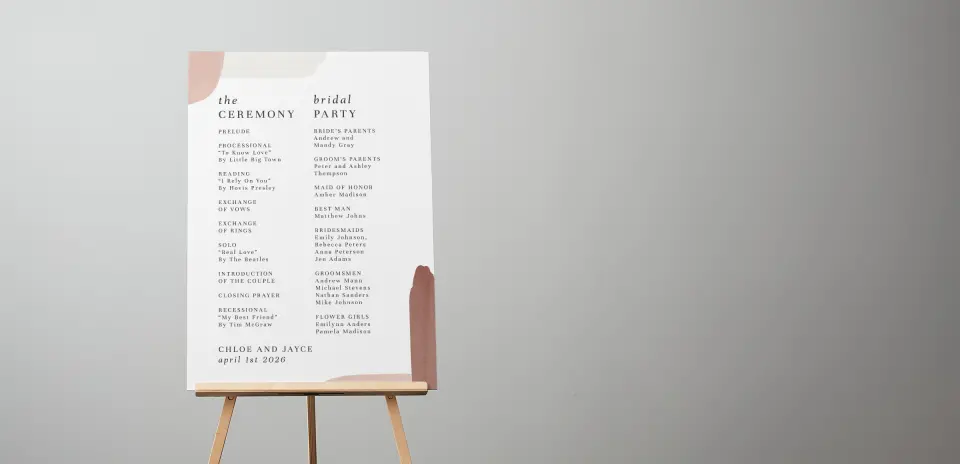 the
CEREMONY
PRELUDE
PROCESSIONAL
"To Know Love"
By Little Big Town
READING
"I Rely On You"
By Hovis Presley
EXCHANGE
OF VOWS
EXCHANGE
OF RINGS
SOLO
"Real Love"
By The Beatles
INTRODUCTION
OF THE COUPLE
CLOSING PRAYER
RECESSIONAL
"My Best Friend"
By Tim McGraw
bridal
PARTY
BRIDE'S PARENTS
Andrew and
Mandy Gray
GROOM'S PARENTS
Peter and Ashley
Thompson
MAID OF HONOR
Amber Madison
BEST MAN
Matthew Johns
BRIDESMAIDS
Emily Johnson,
Rebecca Peters
Anna Peterson
Jen Adams
GROOMSMEN
Andrew Mann
Michael Stevens
Nathan Sanders
Mike Johnson
FLOWER GIRLS
Emilynn Anders
Pamela Madison
CHLOE AND JAYCE
april 1st 2026